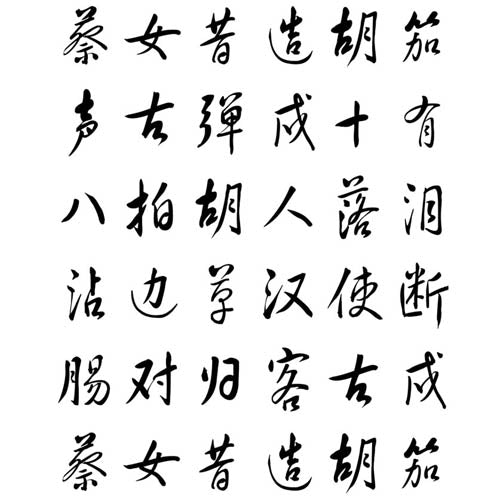 蔡女昔造胡笳
声古弹戍十有
八拍胡人落泪
沾边草汉使断
肠对归客古戍
蔡女昔造胡笳